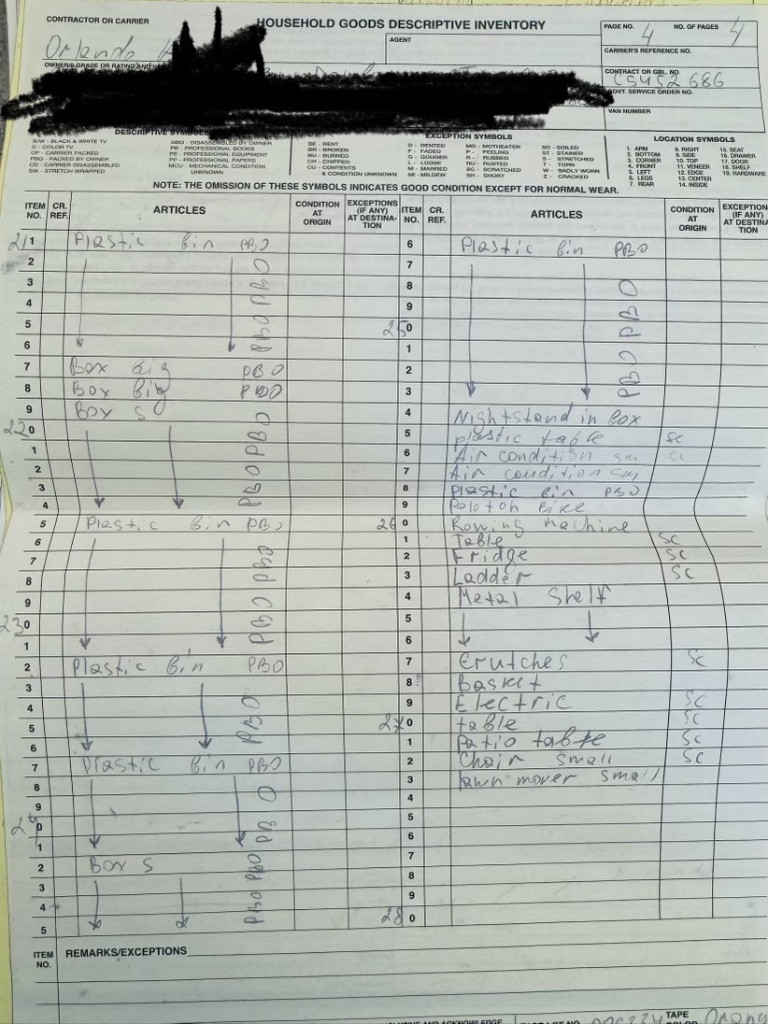 CONTRACTOR OR CARRIER
HOUSEHOLD GOODS DESCRIPTIVE INVENTORY
PAGE NO. 4 NO. OF PAGES 4
Orlando
AGENT
CARRIER'S REFERENCE NO.
CONTRACT OR GBL. NO.
C5452686
GOVT. SERVICE ORDER NO.
VAN NUMBER
DESCRIPTIVE SYMBOLS
EXCEPTION SYMBOLS
LOCATION SYMBOLS
B/W - BLACK & WHITE TV
C - COLOR TV
CP - CARRIER PACKED
PBO - PACKED BY OWNER
CD - CARRIER DISASSEMBLED
SW - STRETCH WRAPPED
DBO - DISASSEMBLED BY OWNER
PB - PROFESSIONAL BOOKS
PE - PROFESSIONAL EQUIPMENT
PP - PROFESSIONAL PAPERS
MCU - MECHANICAL CONDITION UNKNOWN
BE - BENT
BR - BROKEN
BU - BURNED
CH - CHIPPED
CU - CONTENTS & CONDITION UNKNOWN
D - DENTED
F - FADED
G - GOUGED
L - LOOSE
M - MARRED
MI - MILDEW
MO - MOTHEATEN
P - PEELING
R - RUBBED
RU - RUSTED
SC - SCRATCHED
SH - SHORT
SO - SOILED
ST - STAINED
S - STRETCHED
T - TORN
W - BADLY WORN
Z - CRACKED
1. ARM
2. BOTTOM
3. CORNER
4. FRONT
5. LEFT
6. LEGS
7. REAR
8. RIGHT
9. SIDE
10. TOP
11. VENEER
12. EDGE
13. CENTER
14. INSIDE
15. SEAT
16. DRAWER
17. DOOR
18. SHELF
19. HARDWARE
NOTE: THE OMISSION OF THESE SYMBOLS INDICATES GOOD CONDITION EXCEPT FOR NORMAL WEAR.
ITEM NO. CR. REF. ARTICLES CONDITION AT ORIGIN EXCEPTIONS (IF ANY) AT DESTINATION
21 1 Plastic bin PBO
2
3 PBO
4
5 PBO
6
7 Box big PBO
8 Box big PBO
9 Box S
22 0 PBO
1
2
3 PBO
4
5 Plastic bin PBO
6
7 PBO
8
9 PBO
23 0
1
2 Plastic bin PBO
3
4
5 PBO
6
7 Plastic bin PBO
8
9
24 0 PBO
1
2 Box S PBO
3
4 PBO
5
ITEM NO. CR. REF. ARTICLES CONDITION AT ORIGIN EXCEPTION (IF ANY) AT DESTINA TION
6 Plastic bin PBO
7
8
9 PBO
25 0
1
2 PBO
3
4 Nightstand in box
5 plastic table sc
6 Air condition sm
7 Air condition sm
8 Plastic bin PBO
9 Poloton Bike
26 0 Rowing machine
1 Table sc
2 Fridge sc
3 Ladder sc
4 Metal Shelf
5
6
7 Crutches sc
8 Basket
9 Electric sc
27 0 table sc
1 Patio table sc
2 Chair small sc
3 lawn mover small
4
5
6
7
8
9
28 0
ITEM NO. REMARKS/EXCEPTIONS
TAPE